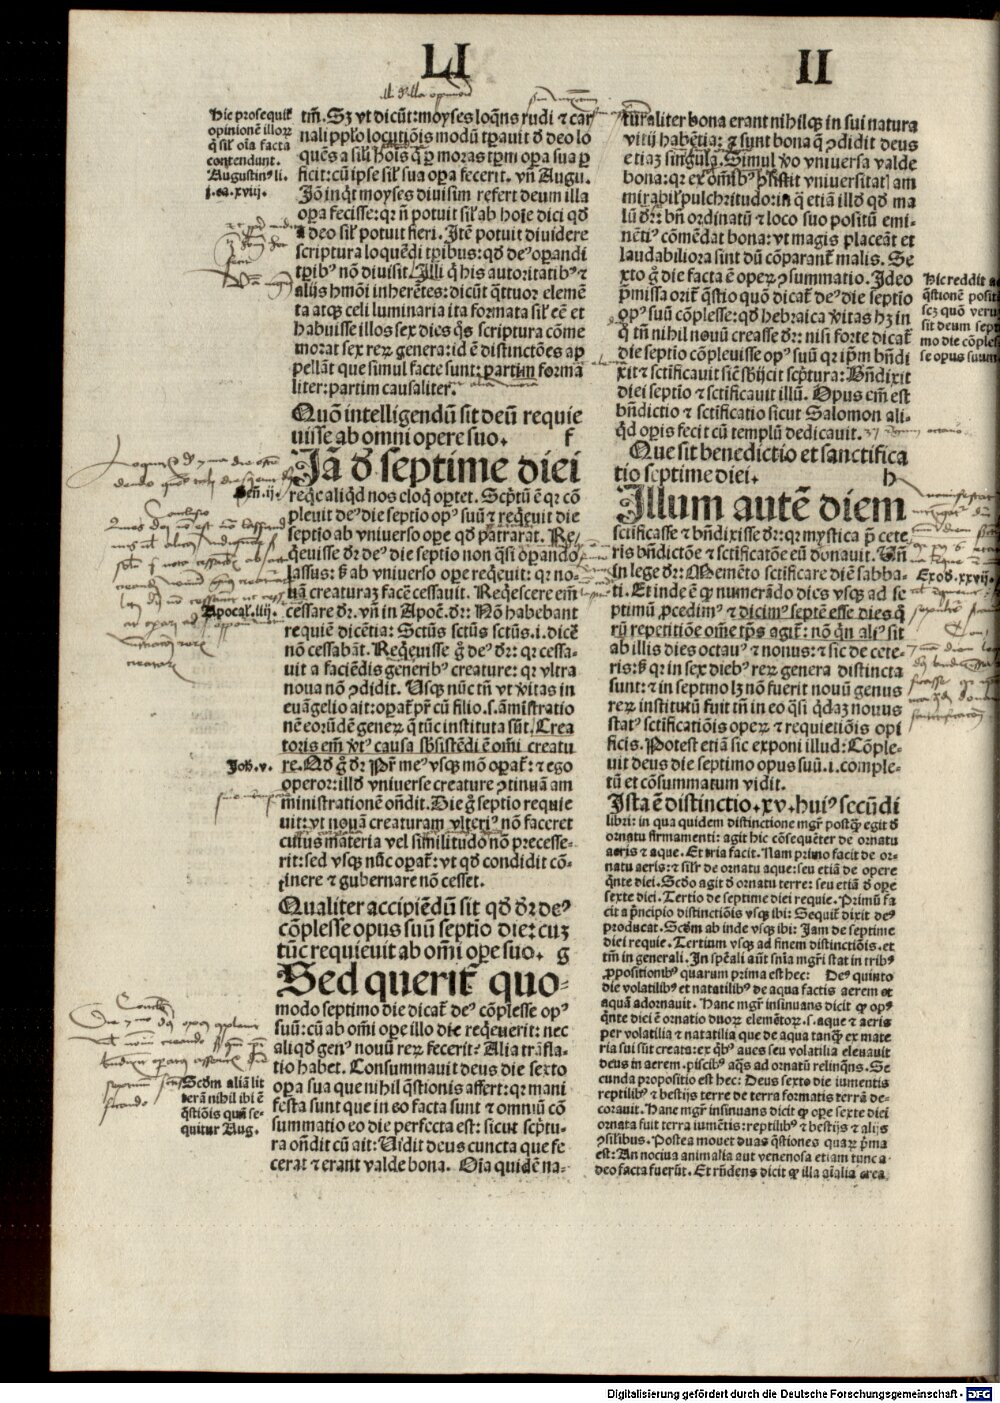 LI
II
Hic prosequit᷒
opinionē illoꝝ
q̄ sil' oīa facta
contendunt.
Augustinꝰ li.
j.ca.xviij.
tm̄. Sꝫ vt dicūt: moyses loq̄ns rudi ⁊ car
nali ppl'o locutiōis modū tꝑauit đ deo lo
quēs a sil'i hoīs q̄ ꝑ moras tꝑm oꝑa sua ꝑ
ficit: cū ipse sil' sua oꝑa fecerit. vn̄ Augu.
Iō inq̄t moyses diuisim refert deum illa
oꝑa fecisse: qꝛ n̄ potuit sil' ab hoīe dici qđ
a deo sil' potuit fieri. Itē potuit diuidere
scriptura loquēdi tꝑibus: qđ deꝰ oꝑandi
tꝑibꝰ nō diuisit. Illi q̄ his autoritatibꝰ ⁊
alijs hmōi inherētes: dicūt q̄ttuor elemē
ta atqꝫ celi luminaria ita formata sil' eē et
habuisse illos sex dies q̄s scriptura cōme
morat sex reꝝ genera: id ē distinctōes ap
pellāt que simul facte sunt: partim forma
liter: partim causaliter.
Quō intelligendū sit deū requie
uisse ab omni opere suo. f
Iā đ septime diei
Gen̄.ij.
req̄e aliqđ nos eloq̄ oꝑtet. Scp̄tū ē qꝛ cō
pleuit deꝰ die septio opꝰ suū ⁊ req̄euit die
septio ab vniuerso oꝑe qđ patrarat. Re
q̄euisse đr deꝰ die septio non q̄si oꝑando
lassus: ꝫ ab vniuerso oꝑe req̄euit: qꝛ no-
uā creaturaꝫ facē cessauit. Req̄escere em̄
Apocal'.iiij.
cessare đr. vn̄ in Apoc̄. đr: Nō habebant
requiē dicētia: Sctūs sctūs sctūs. i. dicē
nō cessabāt. Req̄euisse g̊ deꝰ đr: qꝛ cessa-
uit a faciēdis generibꝰ creature: qꝛ vltra
noua nō ꝯdidit. Usqꝫ nūc tn̄ vt v̄itas in
euāgelio ait: oꝑat᷒ pr̄ cū filio. s. āmistratio
nē eoꝝūdē geneꝝ q̄ tūc instituta sūt. Crea
toris em̄ v̄tꝰ causa sb̄sistēdi ē om̄i creatu
Joh̄.v.
re. Qđ g̊ đr: Pr̄ meꝰ vsqꝫ mō oꝑat᷒: ⁊ ego
operor: illđ vniuerse creature ꝯtinuā am
ministrationē on̄dit. Die g̊ septio requie
uit: vt nouā creaturam vlteriꝰ nō faceret
cuius materia vel similitudo nō precesse-
rit: sed vsqꝫ nūc oꝑat᷒: vt qđ condidit cō-
tinere ⁊ gubernare nō cesset.
Qualiter accipiēdū sit qđ đr deꝰ
cōplesse opus suū septīo die: cuꝫ
tūc requieuit ab om̄i oꝑe suo. g
Sed querit᷒ quo-
modo septimo die dicat᷒ deꝰ cōplesse opꝰ
suū: cū ab om̄i oꝑe illo die req̄euerit: nec
aliqđ genꝰ nouū reꝝ fecerit? Alia trāsla-
tio habet. Consummauit deus die sexto
Scđm aliā lit
terā nihil ibi ē
q̄stiōis qm̄ se-
quitur Aug.
oꝑa sua que nihil q̄stionis affert: qꝛ mani
festa sunt que in eo facta sunt ⁊ omniū cō
summatio eo die perfecta est: sicut scp̄tu-
ra on̄dit cū ait: Uidit deus cuncta que fe
cerat ⁊ erant valde bona. Oīa quidē na-
turaliter bona erant nihilqꝫ in sui natura
vitij habētia: ⁊ sunt bona q̄ ꝯdidit deus
etiaꝫ singula. Simul v̊o vniuersa valde
bona: qꝛ ex om̄ibꝰ ꝯsistit vniuersitatꝭ am
mirabil' pulchritudo: in q̄ etiā illđ qđ ma
lū đr: bn̄ ordinatū ⁊ loco suo positū emi-
nētiꝰ cōmēdat bona: vt magis placeāt et
laudabiliora sint dū cōparant᷒ malis. Se
xto g̊ die facta ē opeꝝ ꝯsummatio. Ideo
Hic reddit a
q̄stionē posit
scꝫ quō veru
sit deum sept
mo die cōples
se opus suum
p̄missa orit᷒ q̄stio quō dicat᷒ deꝰ die septio
opꝰ suū cōplesse: qđ hebraica v̄itas hꝫ in
q̄ tn̄ nihil nouū creasse đr: nisi forte dicat᷒
die septio cōpleuisse opꝰ suū qꝛ ip̄m bn̄di
xit ⁊ sctificauit sic sb̄ijcit scp̄tura: Bn̄dixit
diei septīo ⁊ sctificauit illū. Opus em̄ est
bn̄dictio ⁊ sctificatio sicut Salomon ali-
qđ oꝑis fecit cū templū dedicauit.
Que sit benedictio et sanctifica
tio septime diei. h
Illum autē diem
sctificasse ⁊ bn̄dixisse đr: qꝛ mystica p̄ cete
ris bn̄dictōe ⁊ sctificatōe eū donauit. Un̄
Exođ.xxvij.
in lege đr: Memēto sctificare diē sabba-
ti. Et inde ē ꝙ numerādo dies vsqꝫ ad se
ptimū ꝓcedimꝰ ⁊ dicimꝰ septē esse dies q̄
rū repetitiōe om̄e tp̄s agit᷒: nō q̄n aliꝰ sit
ab illis dies octauꝰ ⁊ nonus: ⁊ sic de cete-
ris: ꝫ qꝛ in sex diebꝰ reꝝ genera distincta
sunt: ⁊ in septimo lꝫ nō fuerit nouū genus
reꝝ institutū fuit tn̄ in eo q̄si q̄daꝫ nouus
statꝰ sctificatiōis opeꝝ ⁊ requietiōis opi
ficis. Potest etiā sic exponi illud: Cōple-
uit deus die septimo opus suū. i. comple-
tū et cōsummatum vidit.
Ista ē distinctio.xv.huiꝰ secūdi
libri: in qua quidem distinctione mgr̄ postqꝫ egit đ
ornatu firmamenti: agit hic cōsequēter de ornatu
aeris ⁊ aque. Et tria facit. Nam primo facit de or-
natu aeris: ⁊ sil'r de ornatu aque: seu etiā de opere
q̄nte diei. Scđo agit đ ornatu terre: seu etiā đ oꝑe
sexte diei. Tertio de septime diei requie. Primū fa
cit a p̄ncipio distinctiōis vsqꝫ ibi: Sequit᷒ dixit deꝰ
producat. Scđm ab inde vsqꝫ ibi: Iam de septime
diei requie. Tertium vsqꝫ ad finem distinctiōis. et
tm̄ in generali. In sp̄ali aūt sn̄ia mgr̄i stat in tribꝰ
ꝓpositionibꝰ quarum prima est hec: Deꝰ quinto
die volatilibꝰ et natatilibꝰ de aqua factis aerem et
aquā adornauit. Hanc mgr̄ insinuans dicit ꝙ opꝰ
q̄nte diei ē ornatio duoꝝ elemētoꝝ. s. aque ⁊ aeris
per volatilia ⁊ natatilia que de aqua tanq̄ꝫ ex mate
ria sui sūt creata: ex q̄bꝰ aues seu volatilia eleuauit
deus in aerem. piscibꝰ aq̄s ad ornatū relinq̄ns. Se
cunda propositio est hec: Deus sexto die iumentis
reptilibꝰ ⁊ bestijs terre de terra formatis terrā de-
corauit. Hanc mgr̄ insinuans dicit ꝙ oꝑe sexte diei
ornata fuit terra iumētis: reptilibꝰ ⁊ bestijs ⁊ alijs
ꝯsilibus. Postea mouet duas q̄stiones quaꝝ p̄ma
est: An nociua animalia aut venenosa etiam tunc a
deo facta fuerūt. Et rn̄dens dicit ꝙ illa aīalia crea
Digitalisierung gefördert durch die Deutsche Forschungsgemeinschaft - DFG